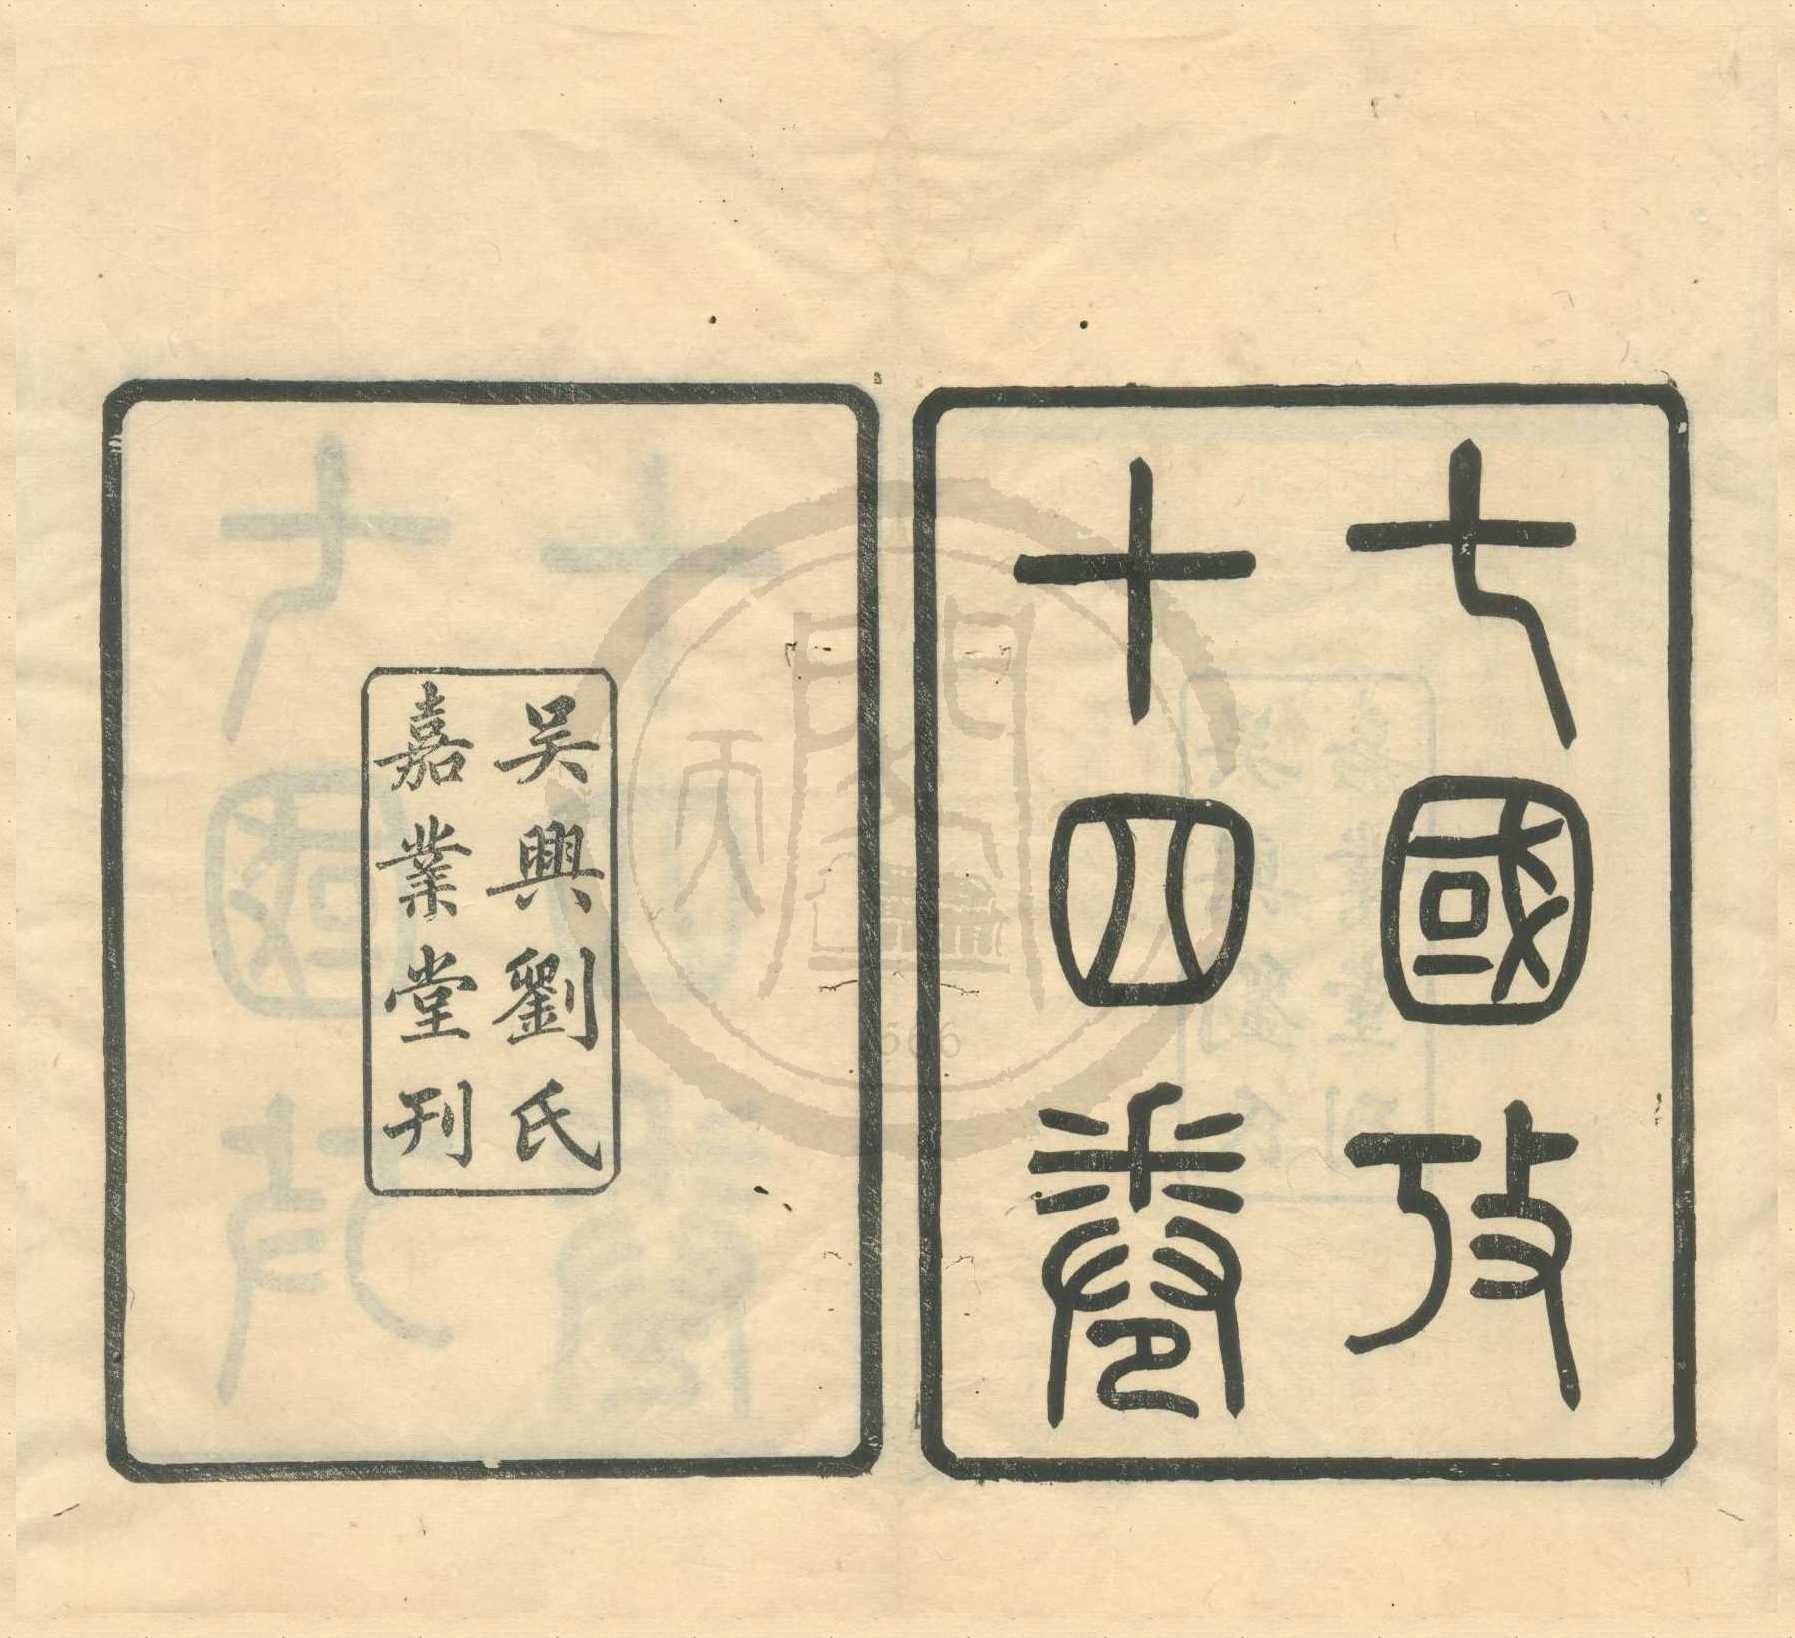 七國攷
十四卷
吴興劉氏
嘉業堂刊
天
閣
1566